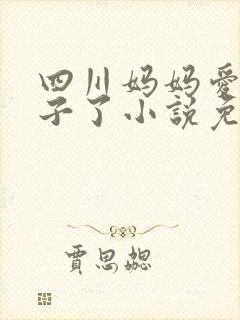 四川妈妈爱
子了小说免
贾思勰